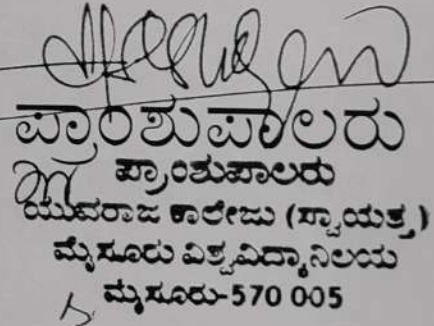 ಪ್ರಾಂಶುಪಾಲರು
ಪ್ರಾಂಶುಪಾಲರು
ಯುವರಾಜ ಕಾಲೇಜು (ಸ್ವಾಯತ್ತ)
ಮೈಸೂರು ವಿಶ್ವವಿದ್ಯಾನಿಲಯ
ಮೈಸೂರು-570 005